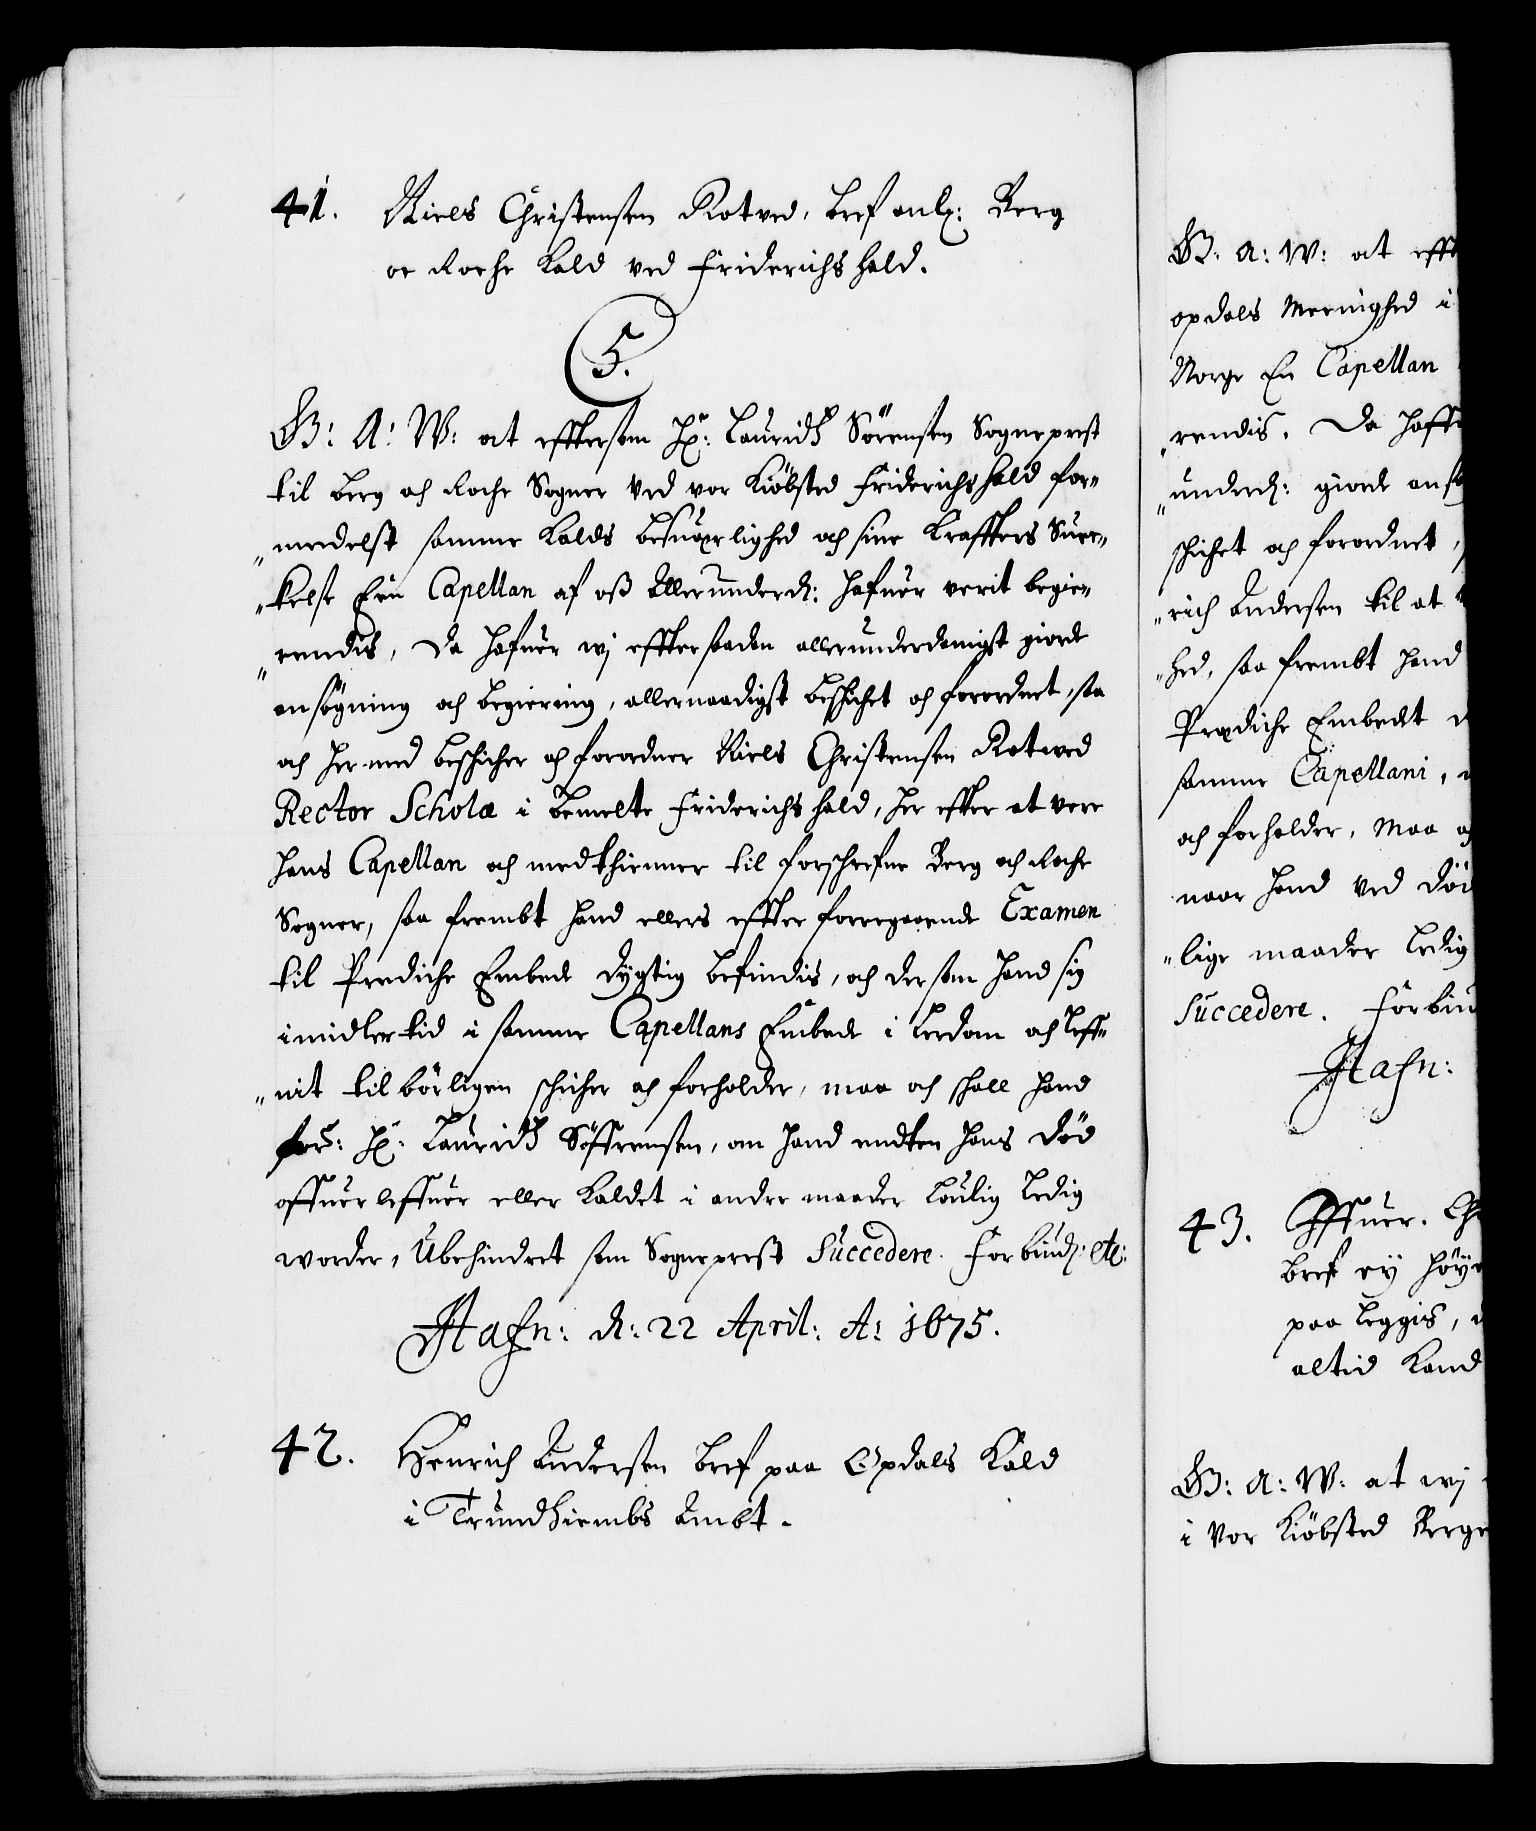 41. Niels Christensen Rotved, bref anlg: Berg
oc Roche Kald ved Friderichshald.
5.
G: A: W: at efftersom Hr: Lauridtz Sörensen Sogneprest
til Berg och Roche Sogner Ved vor Kiöbsted Friderichshald for-
medelst samme Kalds besuærlighed och sine Kraffters Suec-
kelse Een Capellan af oss Allerunderd: hafuer verit begie-
rendis, Da hafuer wj effter saadan allerunderdanigst giorde
ansögning och begiering, allernaadigst beschichet och forordnet, saa
och her med beschicher och forordner Niels Christensen Rotved
Rector Scholæ i bemelte Friderichshald, her effter at vere
hans Capellan och medthienner til forschrefne Berg och Roche
Sogner, saa frembt hand ellers effter foregaaende Examen
til Prediche Embede dygtig befindis, och dersom hand sig
imidlertid i samme Capellans Embede i Lerdom och Leff-
nit tilbörligen schicher och forholder, maa och shall hand
for: Hr: Lauridtz Söffrensen, om hand endten hans död
offuerleffuer eller Kaldet i andre maader Loulig Ledig
worder, Ubehindret som Sogneprest Succedere. Forbiud: etc:
Hafn: d: 22 April: A: 1675.
42. Henrich Andersen bref paa Opdals Kald
i Trundhiembs Ambt.
G: A: W: at efft
opdals Meenighed i
Norge En Capellan
rendis. Da haff
underd: giorde ans
schichet och forordnet,
rich Andersen til at
hed, saa frembt hand
Prædiche Embedt
samme Capellani,
och forholder, Maa
naar hand ved död
lige maader Ledig
Succedere. Forbiu
Hafn:
43. Offuer. Ch
bref ey höy
paa Leggis,
altid Kand
G: A: W: at wj
i Vor Kiöbsted Berge